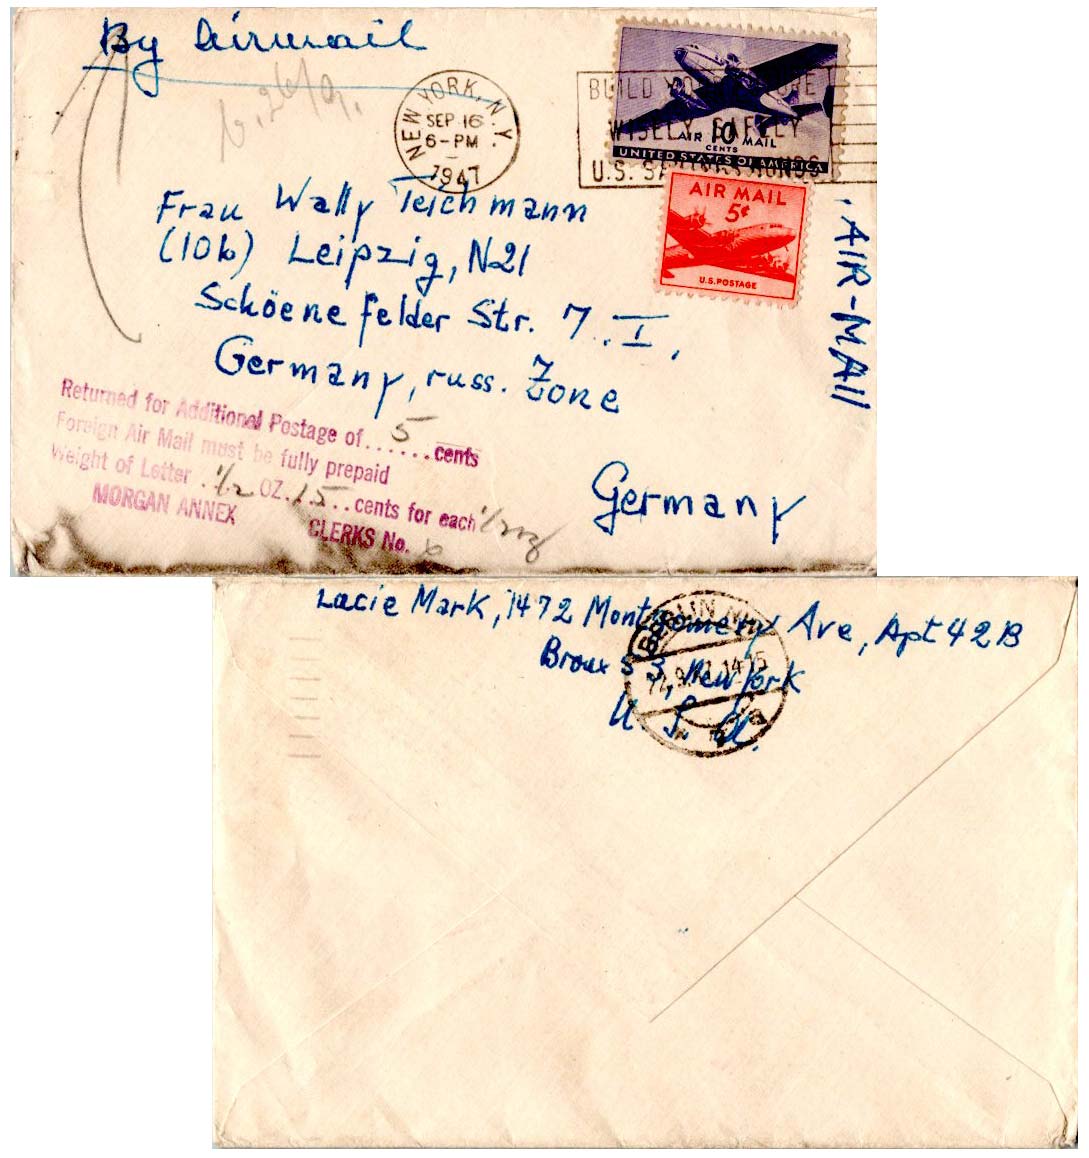 By Airmail
NEW YORK, N.Y.
SEP 16
6-PM
1947
BUILD YOUR FUTURE
WISELY SAFELY
U.S. SAVINGS BONDS
AIR 10 MAIL
CENTS
UNITED STATES OF AMERICA
AIR MAIL
5¢
U.S. POSTAGE
AIR-MAIL
Frau Wally Teichmann
(10b) Leipzig, N21
Schöenefelder Str. 7. I.
Germany, russ. Zone
Germany
Returned for Additional Postage of......5..cents
Foreign Air Mail must be fully prepaid
Weight of Letter .1/2 OZ.15..cents for each 1/2 oz
MORGAN ANNEX CLERKS No.
Lacie Mark, 1472 Montgomery Ave, Apt 42B
Bronx 53, New York
U. S. A.
BERLIN
.9.47.14-15